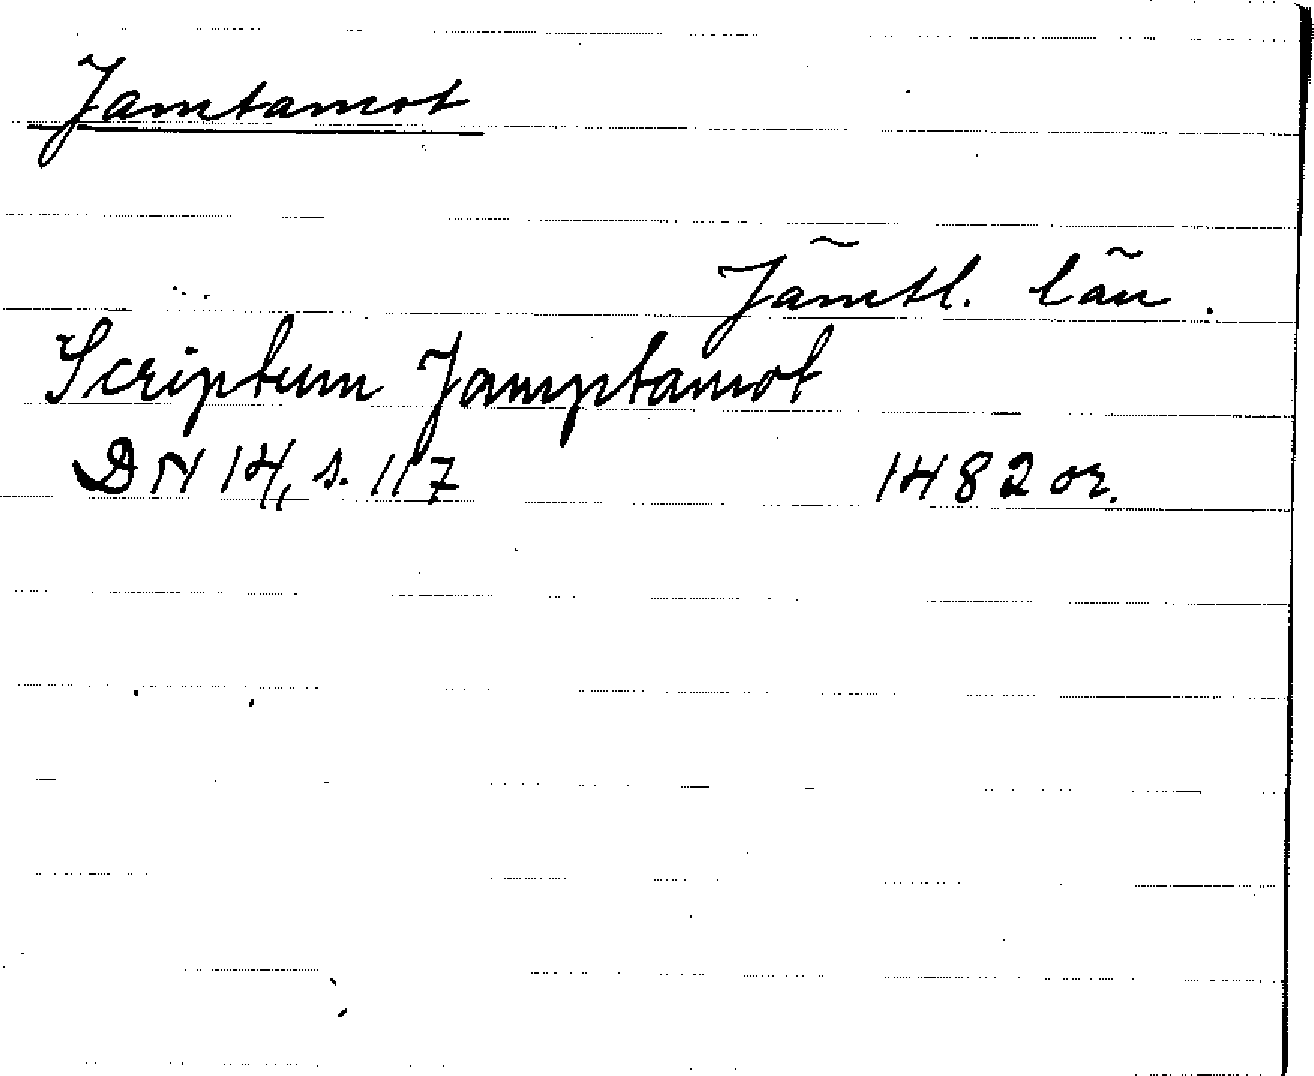 Jamtamot
Jämtl. län.
Scriptum Jamptamot
DN 14, s. 117 1482 or.